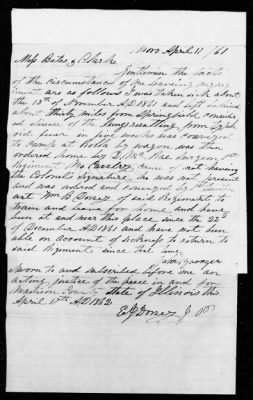 Moro April 11 /61
Mess Bates & Clarke
Gentlemen the facts
of the circumstances of me leaving my reg
iment are as follows I was taken sick about
the 13th of November A D 1861 and left behind
about thirty miles from Springfield consider
ed
fever in five weeks was conveyed
to camp at Rolla by wagon was then
ordered home by Surgeon 1st
Regiment Mo Cavalry not having
the Colonels Signature he was not present
and was ordered and conveyed by
ant Wm B Dorsey of said Regiment to
train and home and have
been at and near this place since the 22d
of December A D 1861 and have not been
able on account of sickness to return to
said Regiment since that time
Sworn to and subscribed before me an
acting justice of the peace in and for
Madison County State of Illinois this
April 11th A D 1862
Dorsey J P